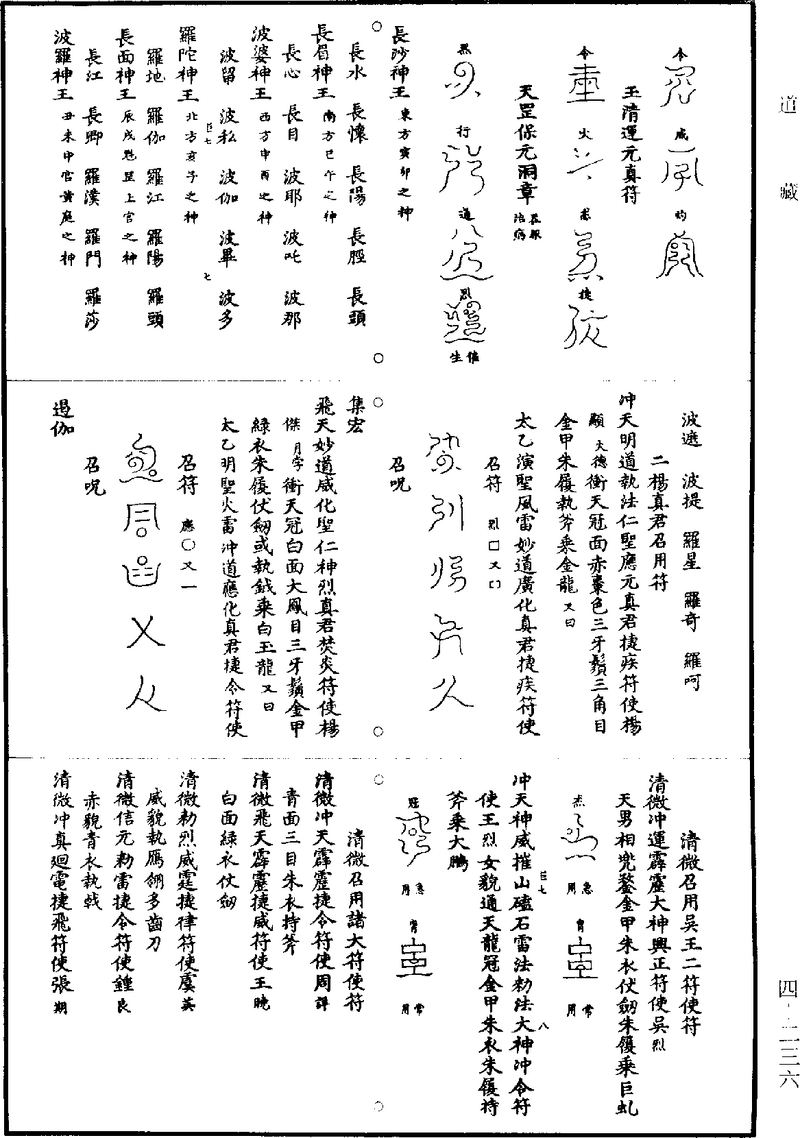 道藏
令 威 昀
玉清運元真符
令 火 忿 捷
天罡保元洞章
然 行 道 烈 催生
長沙神王 東方寅卯之神
長水 長懷 長陽 長脛 長頭
長眉神王 南方巳午之神
長心 長目 波耶 波吒 波那
波婆神王 西方申酉之神
波留 波私 波伽 波畢 波多
羅陀神王 北方亥子之神
羅地 羅伽 羅江 羅陽 羅頭
長面神王 辰戌魁罡上宫之神
長江 長卿 羅漢 羅門 羅莎
波羅神王 丑未中宫黄庭之神
波遮 波提 羅星 羅奇 羅呵
二楊真君召用符
冲天明道執法仁聖應元真君捷疾符使楊
顯 大德衝天冠面赤棗色三牙鬚三角目
金甲朱履執斧乘金龍 又曰
太乙演聖風雷妙道廣化真君捷疾符使
召符 烈囗又囗
召咒
集宏
飛天妙道威化聖仁神烈真君焚炎符使楊
傑 月孛衝天冠白面大鳳目三牙鬚金甲
綠衣朱履伏劒或執鉞乘白玉龍 又曰
太乙明聖火雷冲道應化真君捷令符使
召符 應〇又一
召咒
遏伽
清微召用吴王二符使符
清微冲運霹靂大神興正符使吴烈
天男相兜鍪金甲朱衣伏劒朱履乘巨虬
常用
冲天神威摧山磕石雷法勑法大神冲令符
使王烈女貌通天龍冠金甲朱衣朱履持
斧乘大鵬
常用
清微召用諸大符使符
清微冲天霹靂捷令符使周詳
青面三目朱衣持斧
清微飛天霹靂捷威符使王曉
白面綠衣仗劒
清微勑烈威霆捷律符使虞英
威貌執鴈翎多齒刀
清微信元勑雷捷令符使鍾良
赤貌青衣執戟
清微冲真廻電捷飛符使張期
四-二三六